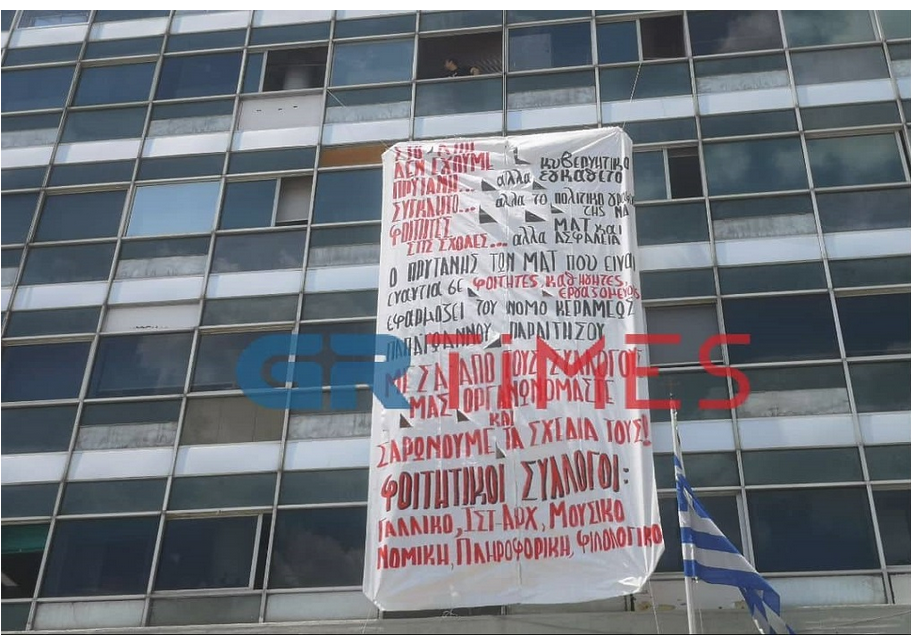 ΣΤΟ ΑΠΘ
ΔΕΝ ΕΧΟΥΜΕ
ΠΡΥΤΑΝΗ... αλλα κυβερνητικο εγκαθετο
ΣΥΓΚΛΗΤΟ... αλλα το πολιτικο γραφειο της ΝΔ
ΦΟΙΤΗΤΕΣ
ΣΤΙΣ ΣΧΟΛΕΣ... αλλα ΜΑΤ και ΑΣΦΑΛΕΙΑ
Ο ΠΡΥΤΑΝΗΣ ΤΩΝ ΜΑΤ ΠΟΥ ΕΙΝΑΙ
ΕΝΑΝΤΙΑ ΣΕ ΦΟΙΤΗΤΕΣ, ΚΑΘΗΓΗΤΕΣ,
ΕΡΓΑΖΟΜΕΝΟΥΣ
ΕΦΑΡΜΟΖΕΙ ΤΟΥ ΝΟΜΟ ΚΕΡΑΜΕΩΣ
ΠΑΠΑΪΩΑΝΝΟΥ ΠΑΡΑΙΤΗΣΟΥ
ΜΕΣΑ ΑΠΟ ΤΟΥΣ ΣΥΛΛΟΓΟΥΣ
ΜΑΣ ΟΡΓΑΝΩΝΟΜΑΣΤΕ
ΚΑΙ
ΣΑΡΩΝΟΥΜΕ ΤΑ ΣΧΕΔΙΑ ΤΟΥΣ!
ΦΟΙΤΗΤΙΚΟΙ ΣΥΛΛΟΓΟΙ:
ΓΑΛΛΙΚΟ, ΙΣΤ-ΑΡΧ, ΜΟΥΣΙΚΟ
ΝΟΜΙΚΗ, ΠΛΗΡΟΦΟΡΙΚΗ, ΦΙΛΟΛΟΓΙΚΟ
GRTiMES